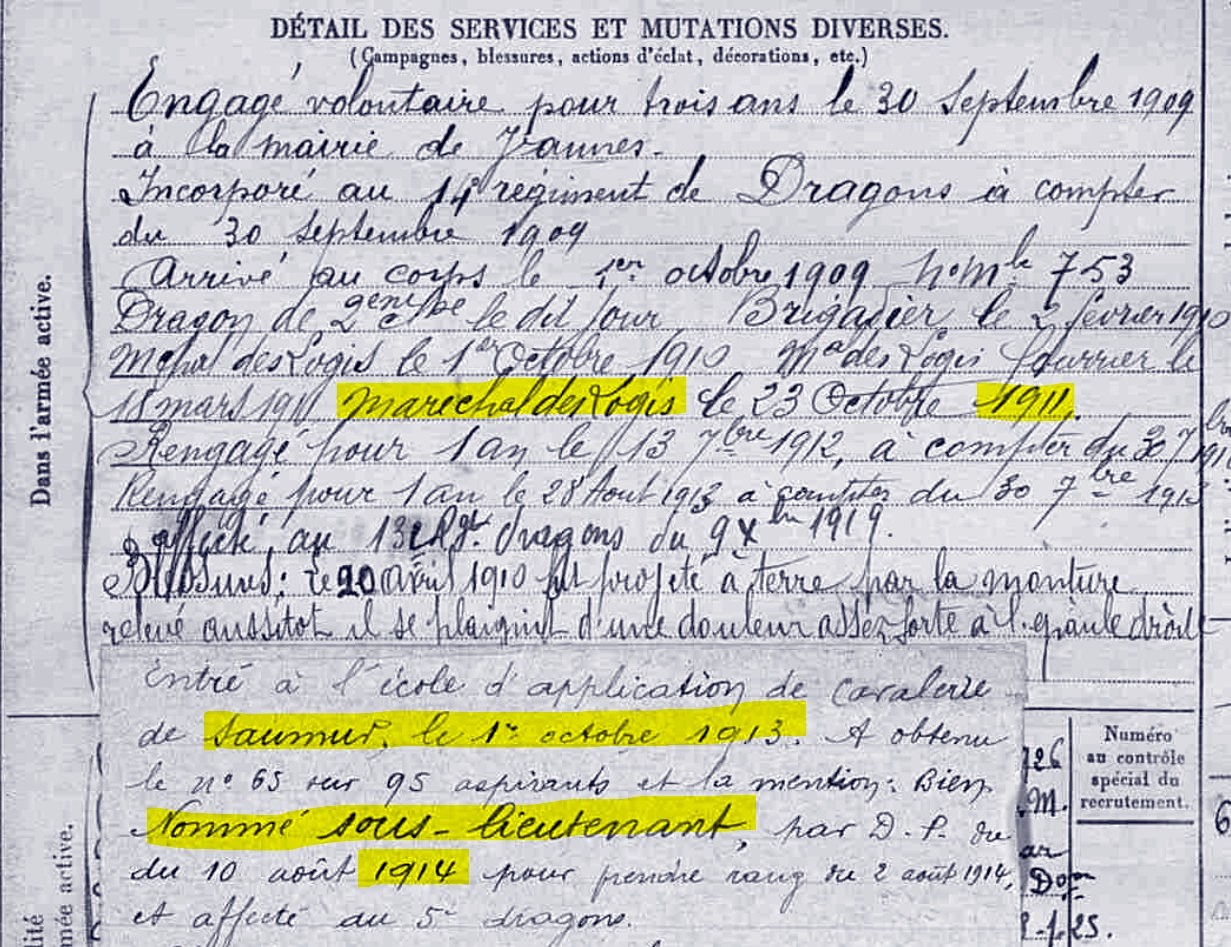 DÉTAIL DES SERVICES ET MUTATIONS DIVERSES.
(Campagnes, blessures, actions d'éclat, décorations, etc.)
Dans l'armée active.
Engagé volontaire pour trois ans le 30 Septembre 1909
à la mairie de Vannes.
Incorporé au 14e régiment de Dragons à compter
du 30 septembre 1909
Arrivé au corps le 1er octobre 1909 No Mle 753
Dragon de 2eme cl le dit jour Brigadier le 2 février 1910
Mchal des Logis le 1er Octobre 1910 Mal des Logis fourrier le
18 mars 1911 Marechal des Logis le 23 Octobre 1911.
Rengagé pour 1 an le 13 7bre 1912, à compter du 30 7bre
Rengagé pour 1 an le 28 Aout 1913 à compter du 30 7bre 191
affecté, au 13e Rgt. dragons du 9 Xbre 1919.
Blessures: le 20 avril 1910 fut projeté à terre par la monture
relevé aussitot il se plaignit d'une douleur assez forte à l'épaule droit
Entré à l'école d'application de cavalerie
de Saumur, le 1er octobre 1913. A obtenu
le n° 65 sur 95 aspirants et la mention: Bien
Nommé sous-lieutenant, par D. P. du
du 10 août 1914 pour prendre rang du 2 août 1914,
et affecté au 5e dragons.
Numéro
au contrôle
spécial du
recrutement.
726
.M.
ar
Dom
2-1.25.
6
lité
mée active.